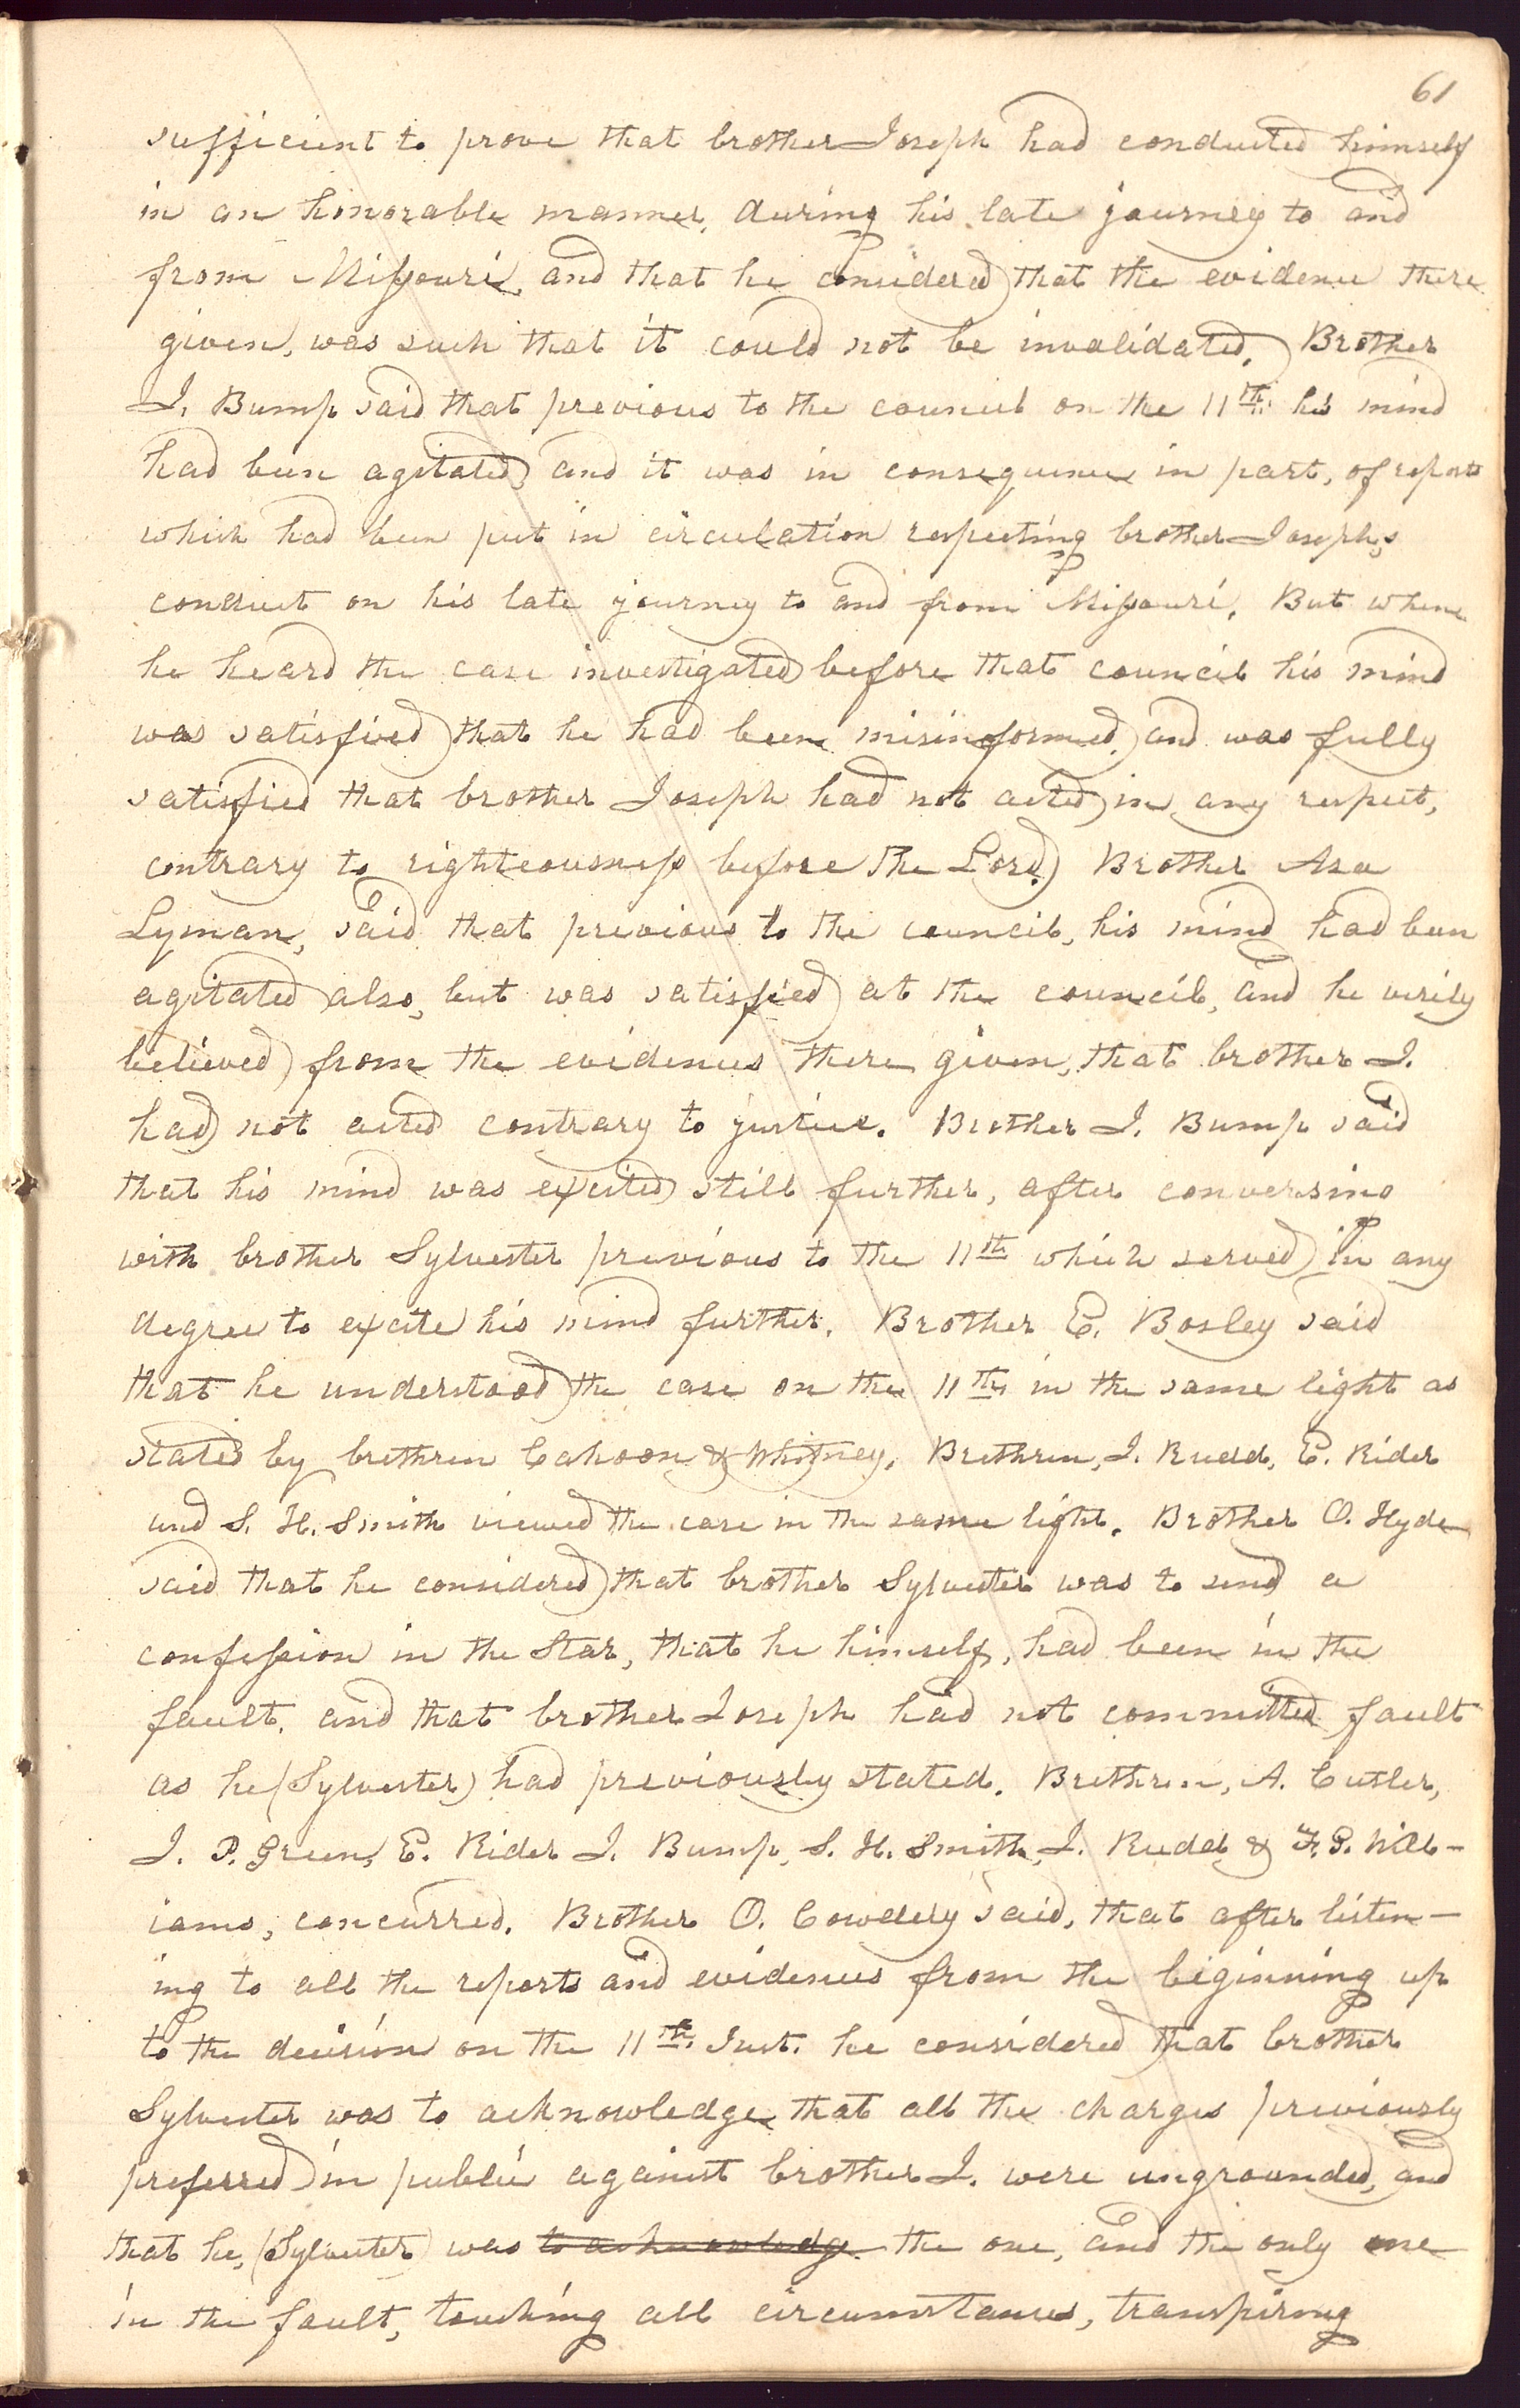 61
sufficient to prove that brother Joseph had conducted himself
in an honorable manner, during his late journey to and
from Missouri, and that he considered that the evidence there
given, was such that it could not be invalidated. Brother
J. Bump said that previous to the council on the 11th. his mind
had been agitated, and it was in consequence in part, of reports
which had been put in circulation respecting brother Joseph,s
conduct on his late journey to and from Missouri. But when
he heard the case investigated before that council his mind
was satisfied that he had been misinformed, and was fully
satisfied that brother Joseph had not acted in any respect,
contrary to righteousness before the Lord. Brother Asa
Lyman, said that previous to the council, his mind had been
agitated also, but was satisfied at the council, and he verily
believed from the evidences there given, that brother J.
had not acted contrary to justice. Brother J. Bump said
that his mind was excited still further, after conversing
with brother Sylvester previous to the 11th which served in any
degree to excite his mind further. Brother E. Bosley said
that he understood the case on the 11th, in the same light as
stated by brethren Cahoon & Whitney. Brethren, J. Rudd, E. Rider
and S. H. Smith viewed the case in the same light. Brother O. Hyde
said that he considered that brother Sylvester was to send a
confession in the Star, that he himself, had been in the
fault, and that brother Joseph had not committed fault
as he (Sylvester) had previously stated. Brethren, A. Cutler,
J. P. Green, E. Rider J. Bump, S. H. Smith, J. Rudd & F. G. Will-
iams, concurred. Brother O. Cowdery said, that after listen-
ing to all the reports and evidences from the beginning up
to the decision on the 11th. Inst. he considered that brother
Sylvester was to acknowledge that all the charges previously
preferred in public against brother J. were ungrounded, and
that he, (Sylvester) was to acknowledge the one, and the only one
in the fault, touching all circumstances, transpiring